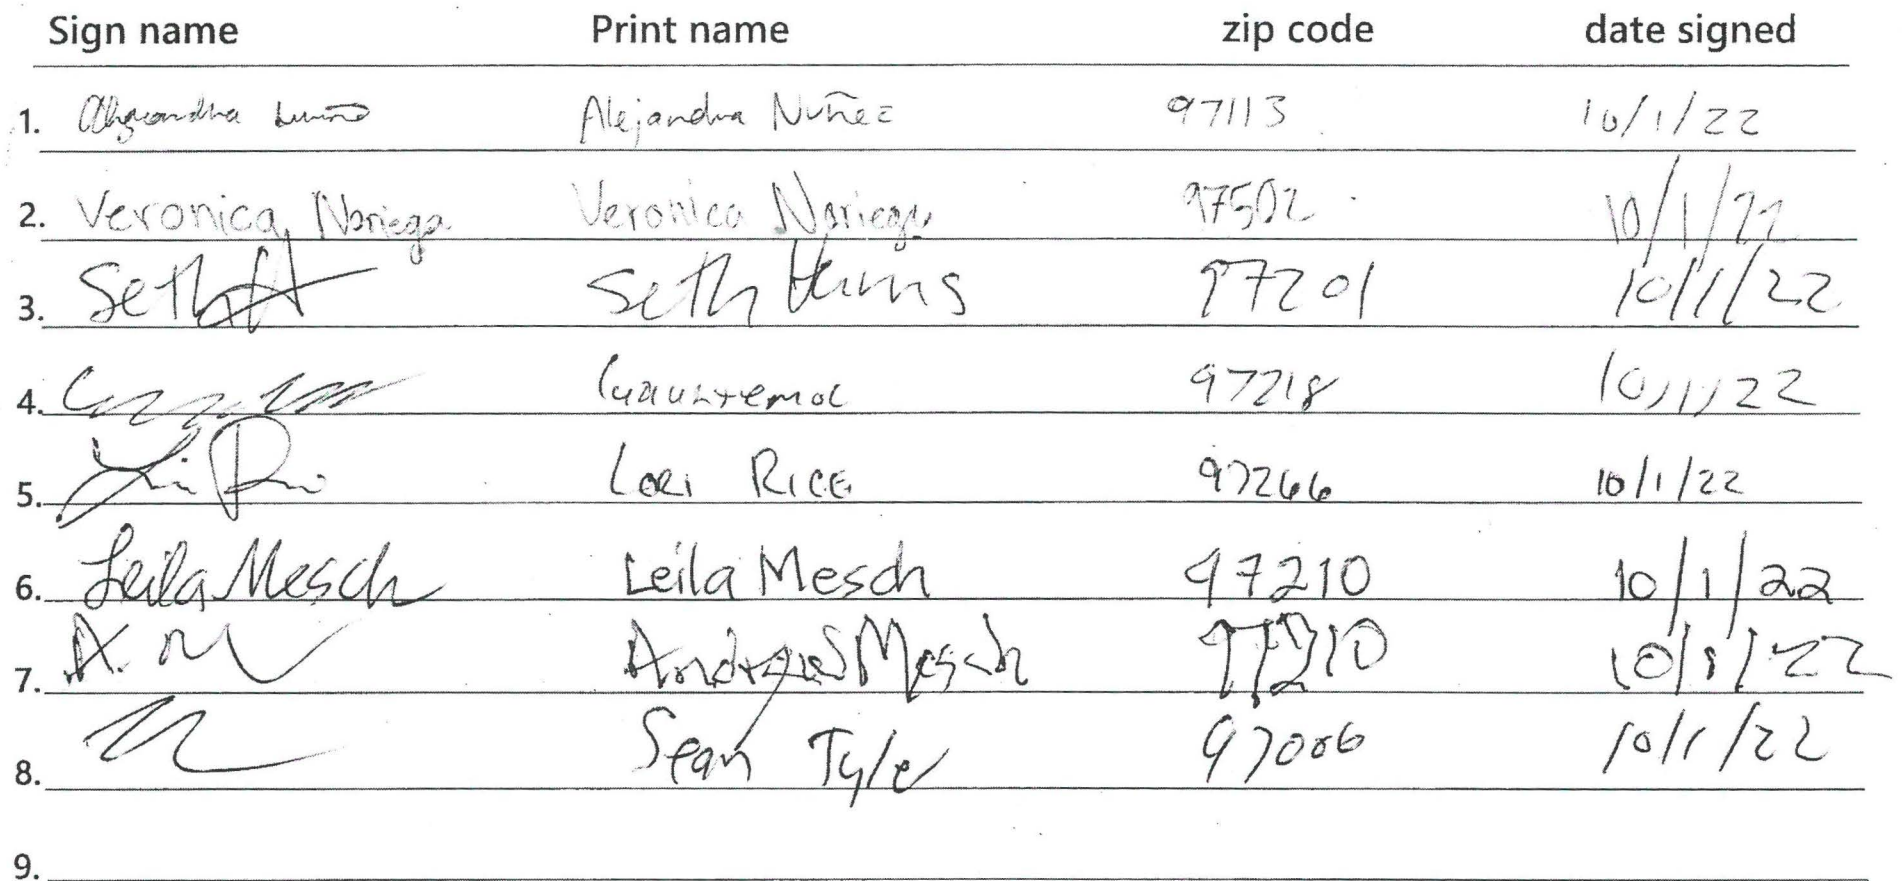 Sign name Print name zip code date signed
1. Alejandra Nuñez 97113 10/1/22
2. Veronica Noriega Veronica Noriega 97502 10/1/22
3. Seth Seth 97201 10/1/22
4. 97218 10/1/22
5. Lori Rice 97266 10/1/22
6. Leila Mesch Leila Mesch 97210 10/1/22
7. A. M Andrew Mesch 97210 10/1/22
8. Sean Tyler 97006 10/1/22
9.